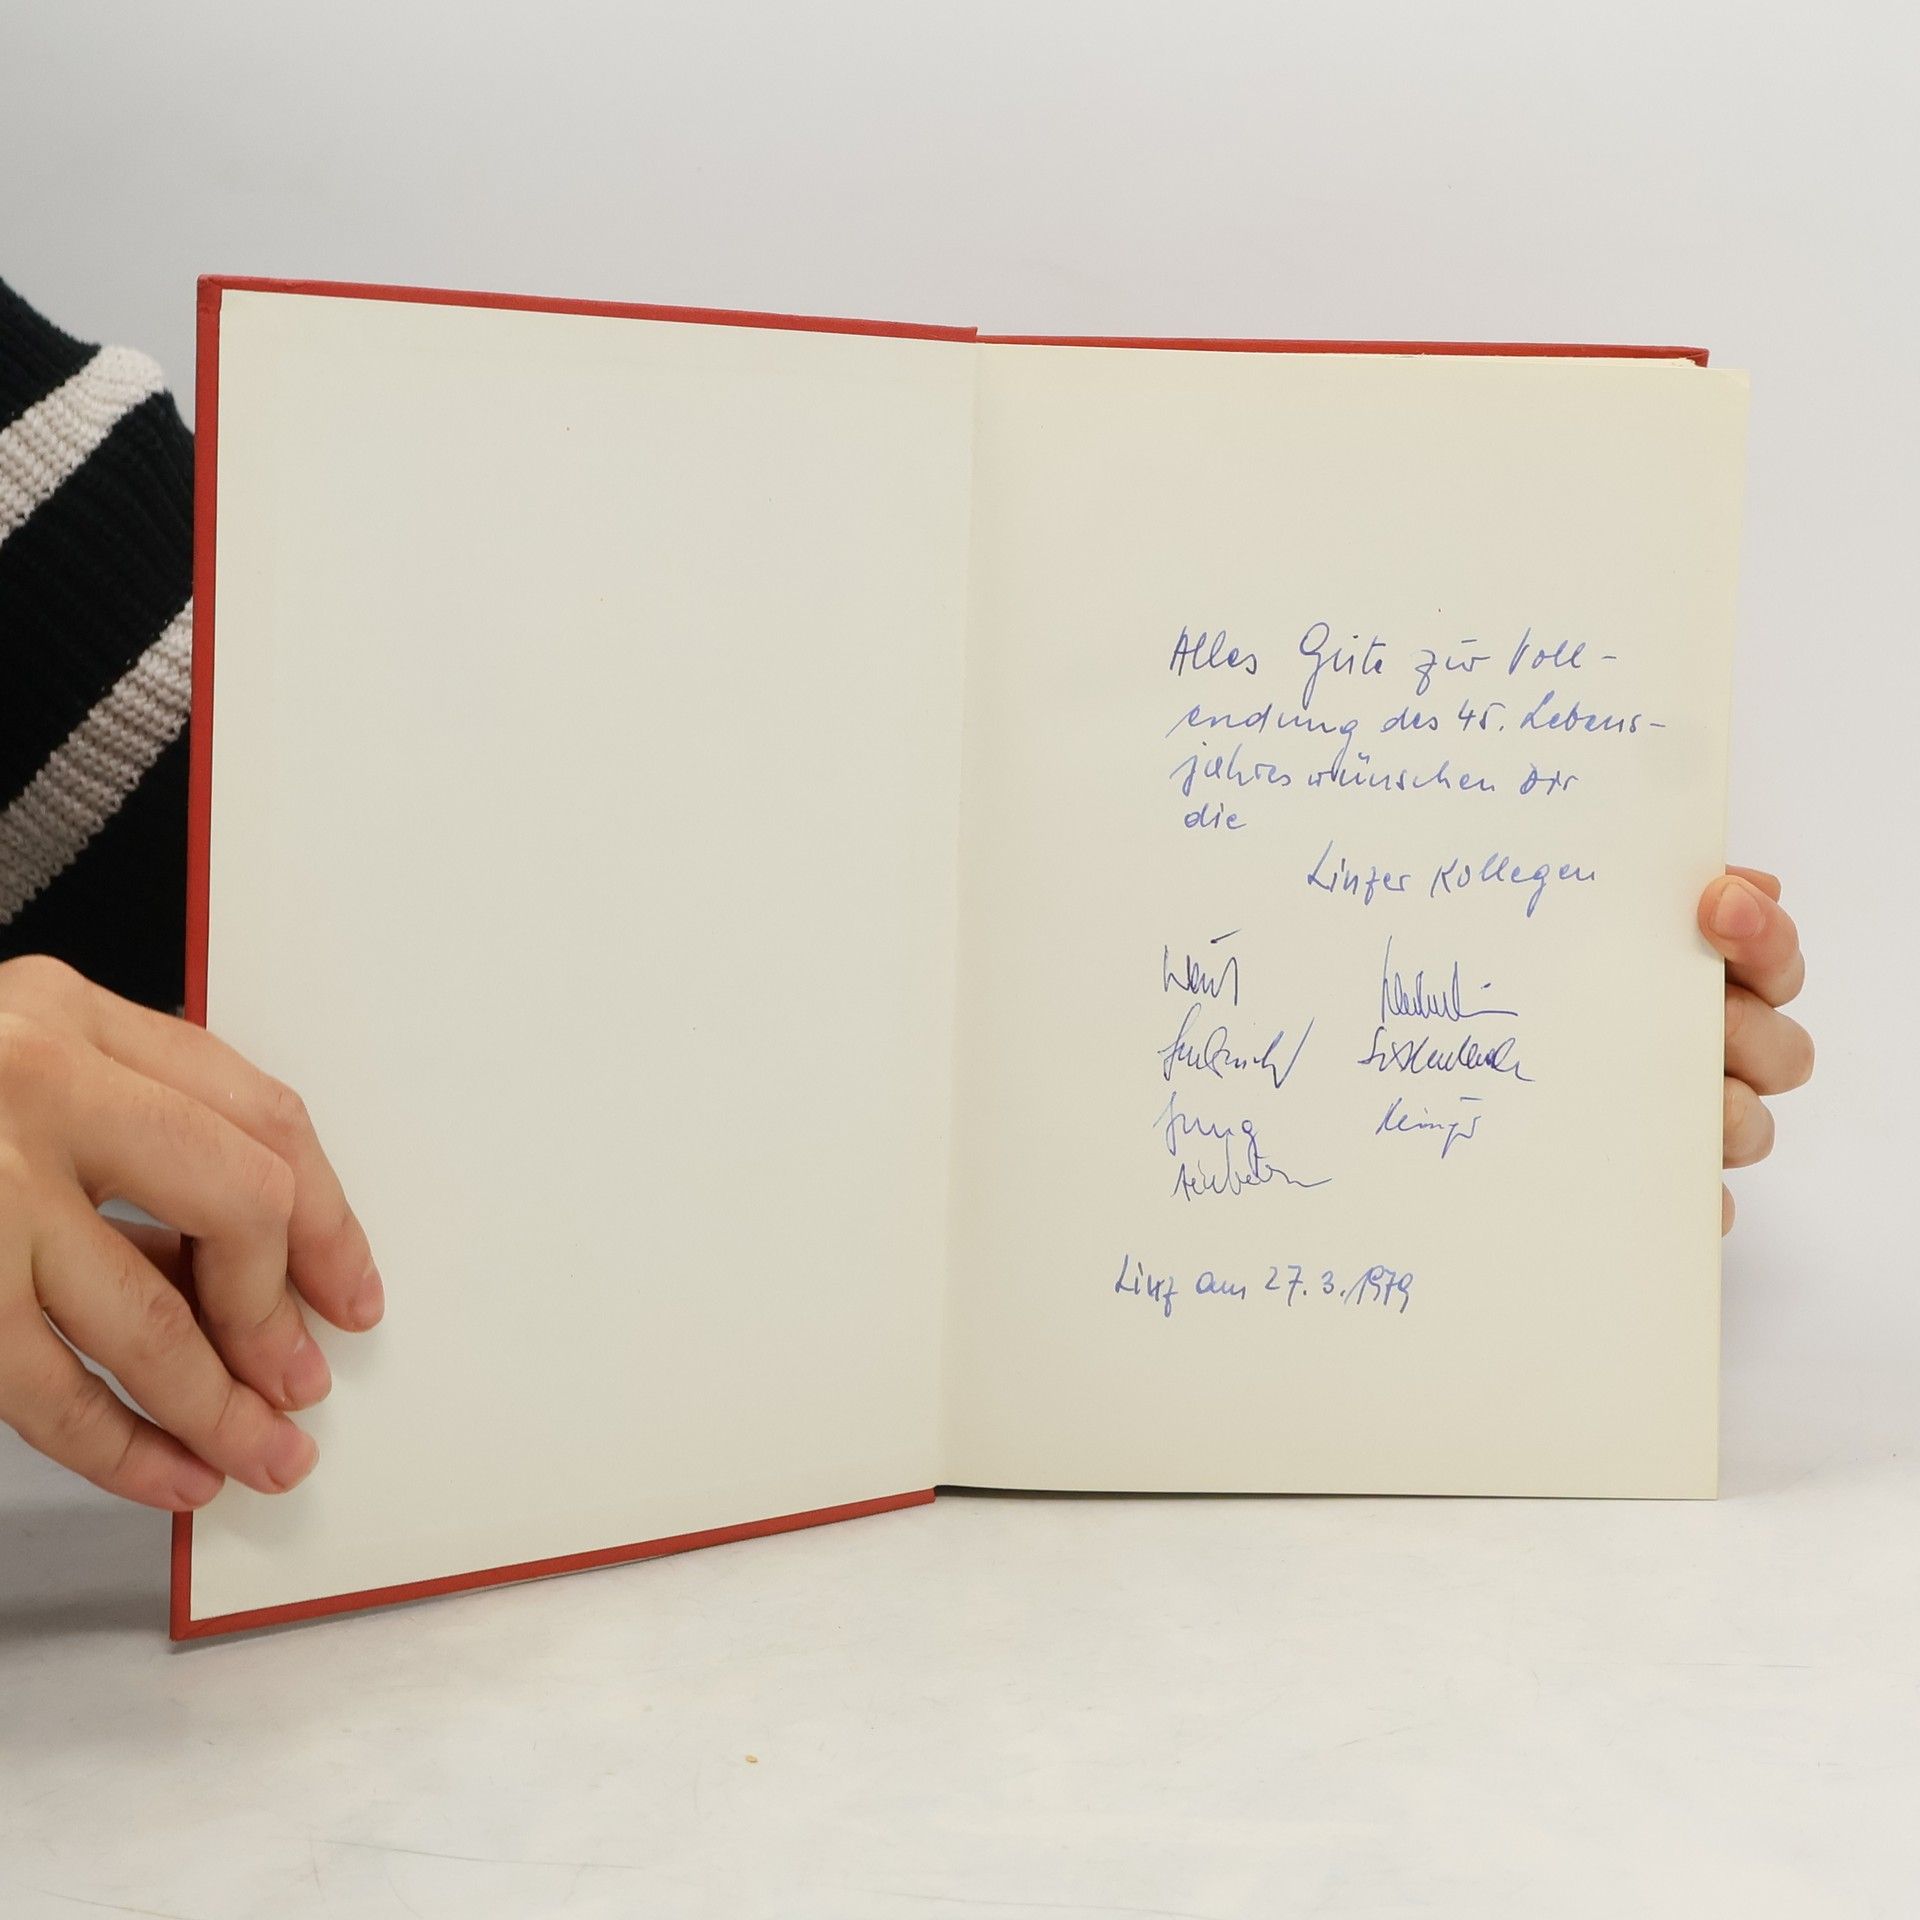 Alles Gute zur Voll-
endung des 45. Lebens-
jahres wünschen Dir
die
Linzer Kollegen
Jung
Linz am 27.3.1979